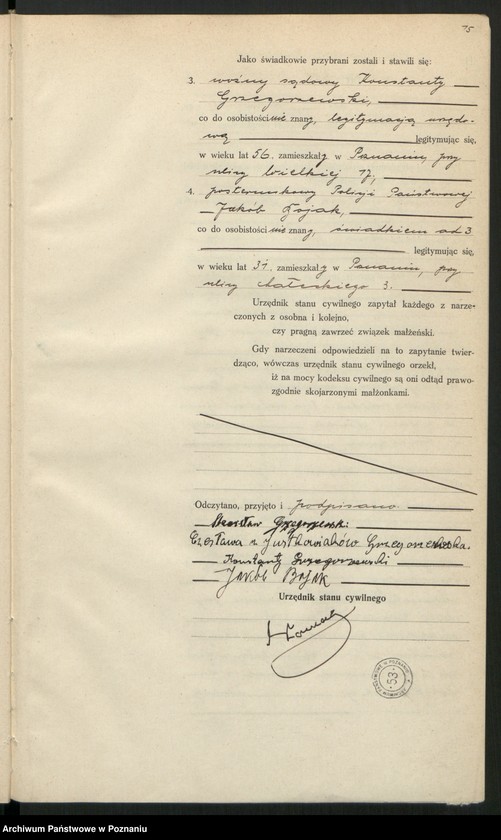 75
Jako świadkowie przybrani zostali i stawili się:
3. woźny sądowy Konstanty
Grzegorzewski,
co do osobistości nie znany, legitymacją urzędo-
wą legitymując się,
w wieku lat 56. zamieszkały w Poznaniu, przy
ulicy Wielkiej 17,
4. posterunkowy Policji Państwowej
Jakób Bojak,
co do osobistości nie znany, świadkiem ad 3
legitymując się,
w wieku lat 31. zamieszkały w Poznaniu, przy
ulicy Małeckiego 3.
Urzędnik stanu cywilnego zapytał każdego z narze-
czonych z osobna i kolejno,
czy pragną zawrzeć związek małżeński.
Gdy narzeczeni odpowiedzieli na to zapytanie twier-
dząco, wówczas urzędnik stanu cywilnego orzekł,
iż na mocy kodeksu cywilnego są oni odtąd prawo-
zgodnie skojarzonymi małżonkami.
Odczytano, przyjęto i podpisano.
Grzegorzewski
Czesława z Justkowiaków Grzegorzewska.
Konstanty Grzegorzewski
Jakób Bojak
Urzędnik stanu cywilnego
53
Archiwum Państwowe w Poznaniu